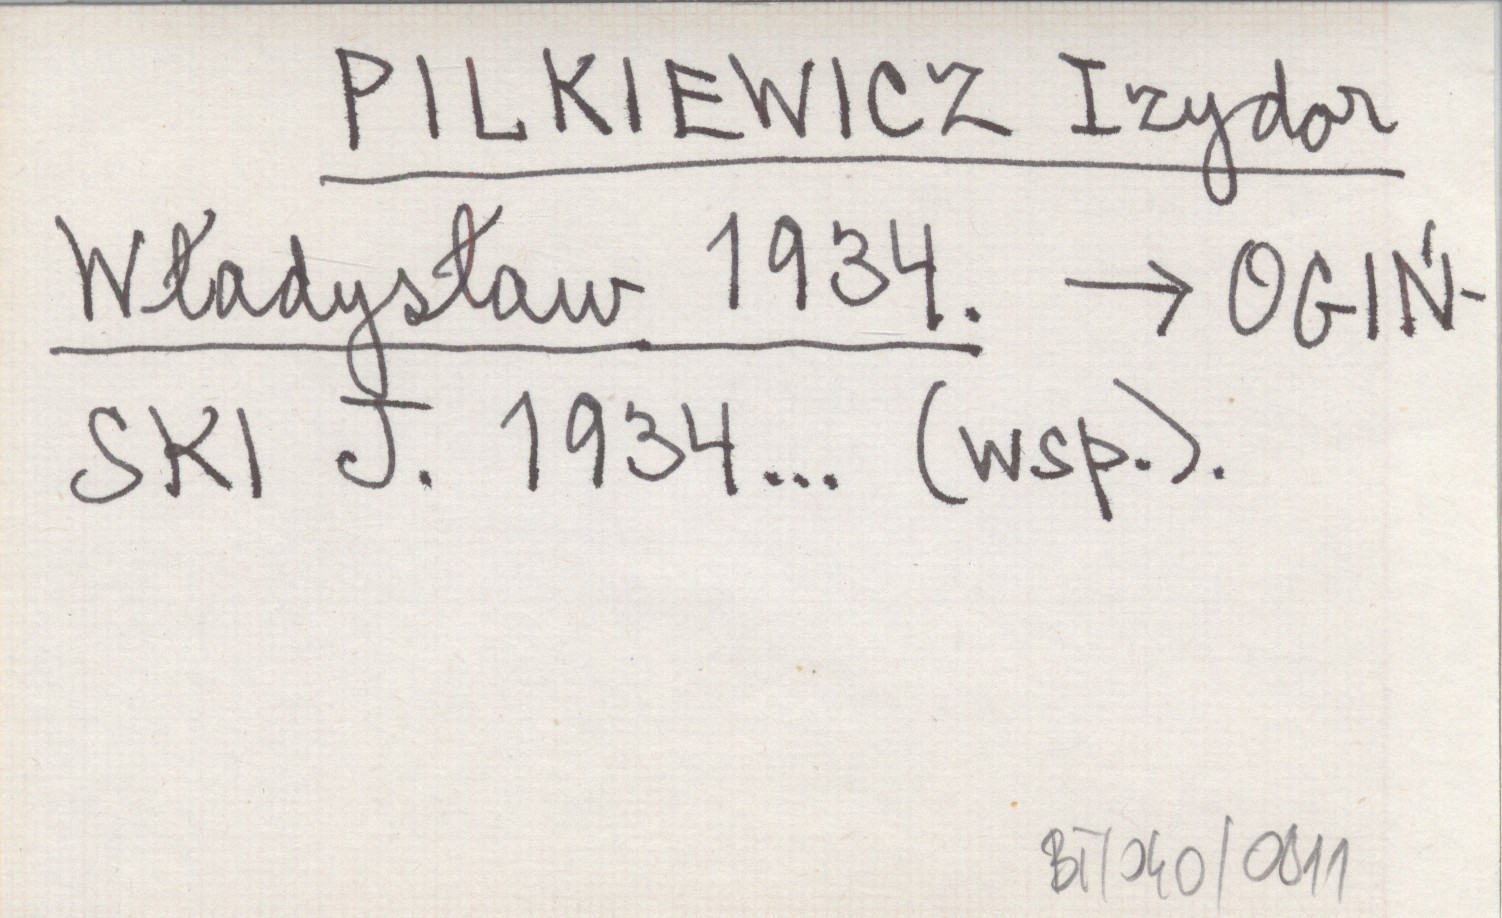 PILKIEWICZ Izydor
Władysław 1934. → OGIŃ-
SKI J. 1934... (wsp.).
BT/040/0811